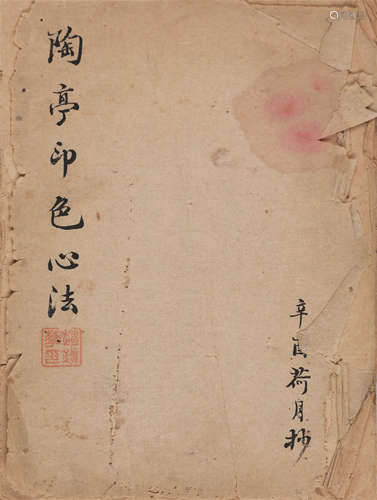 陶亭印色心法
辛酉荷月抄